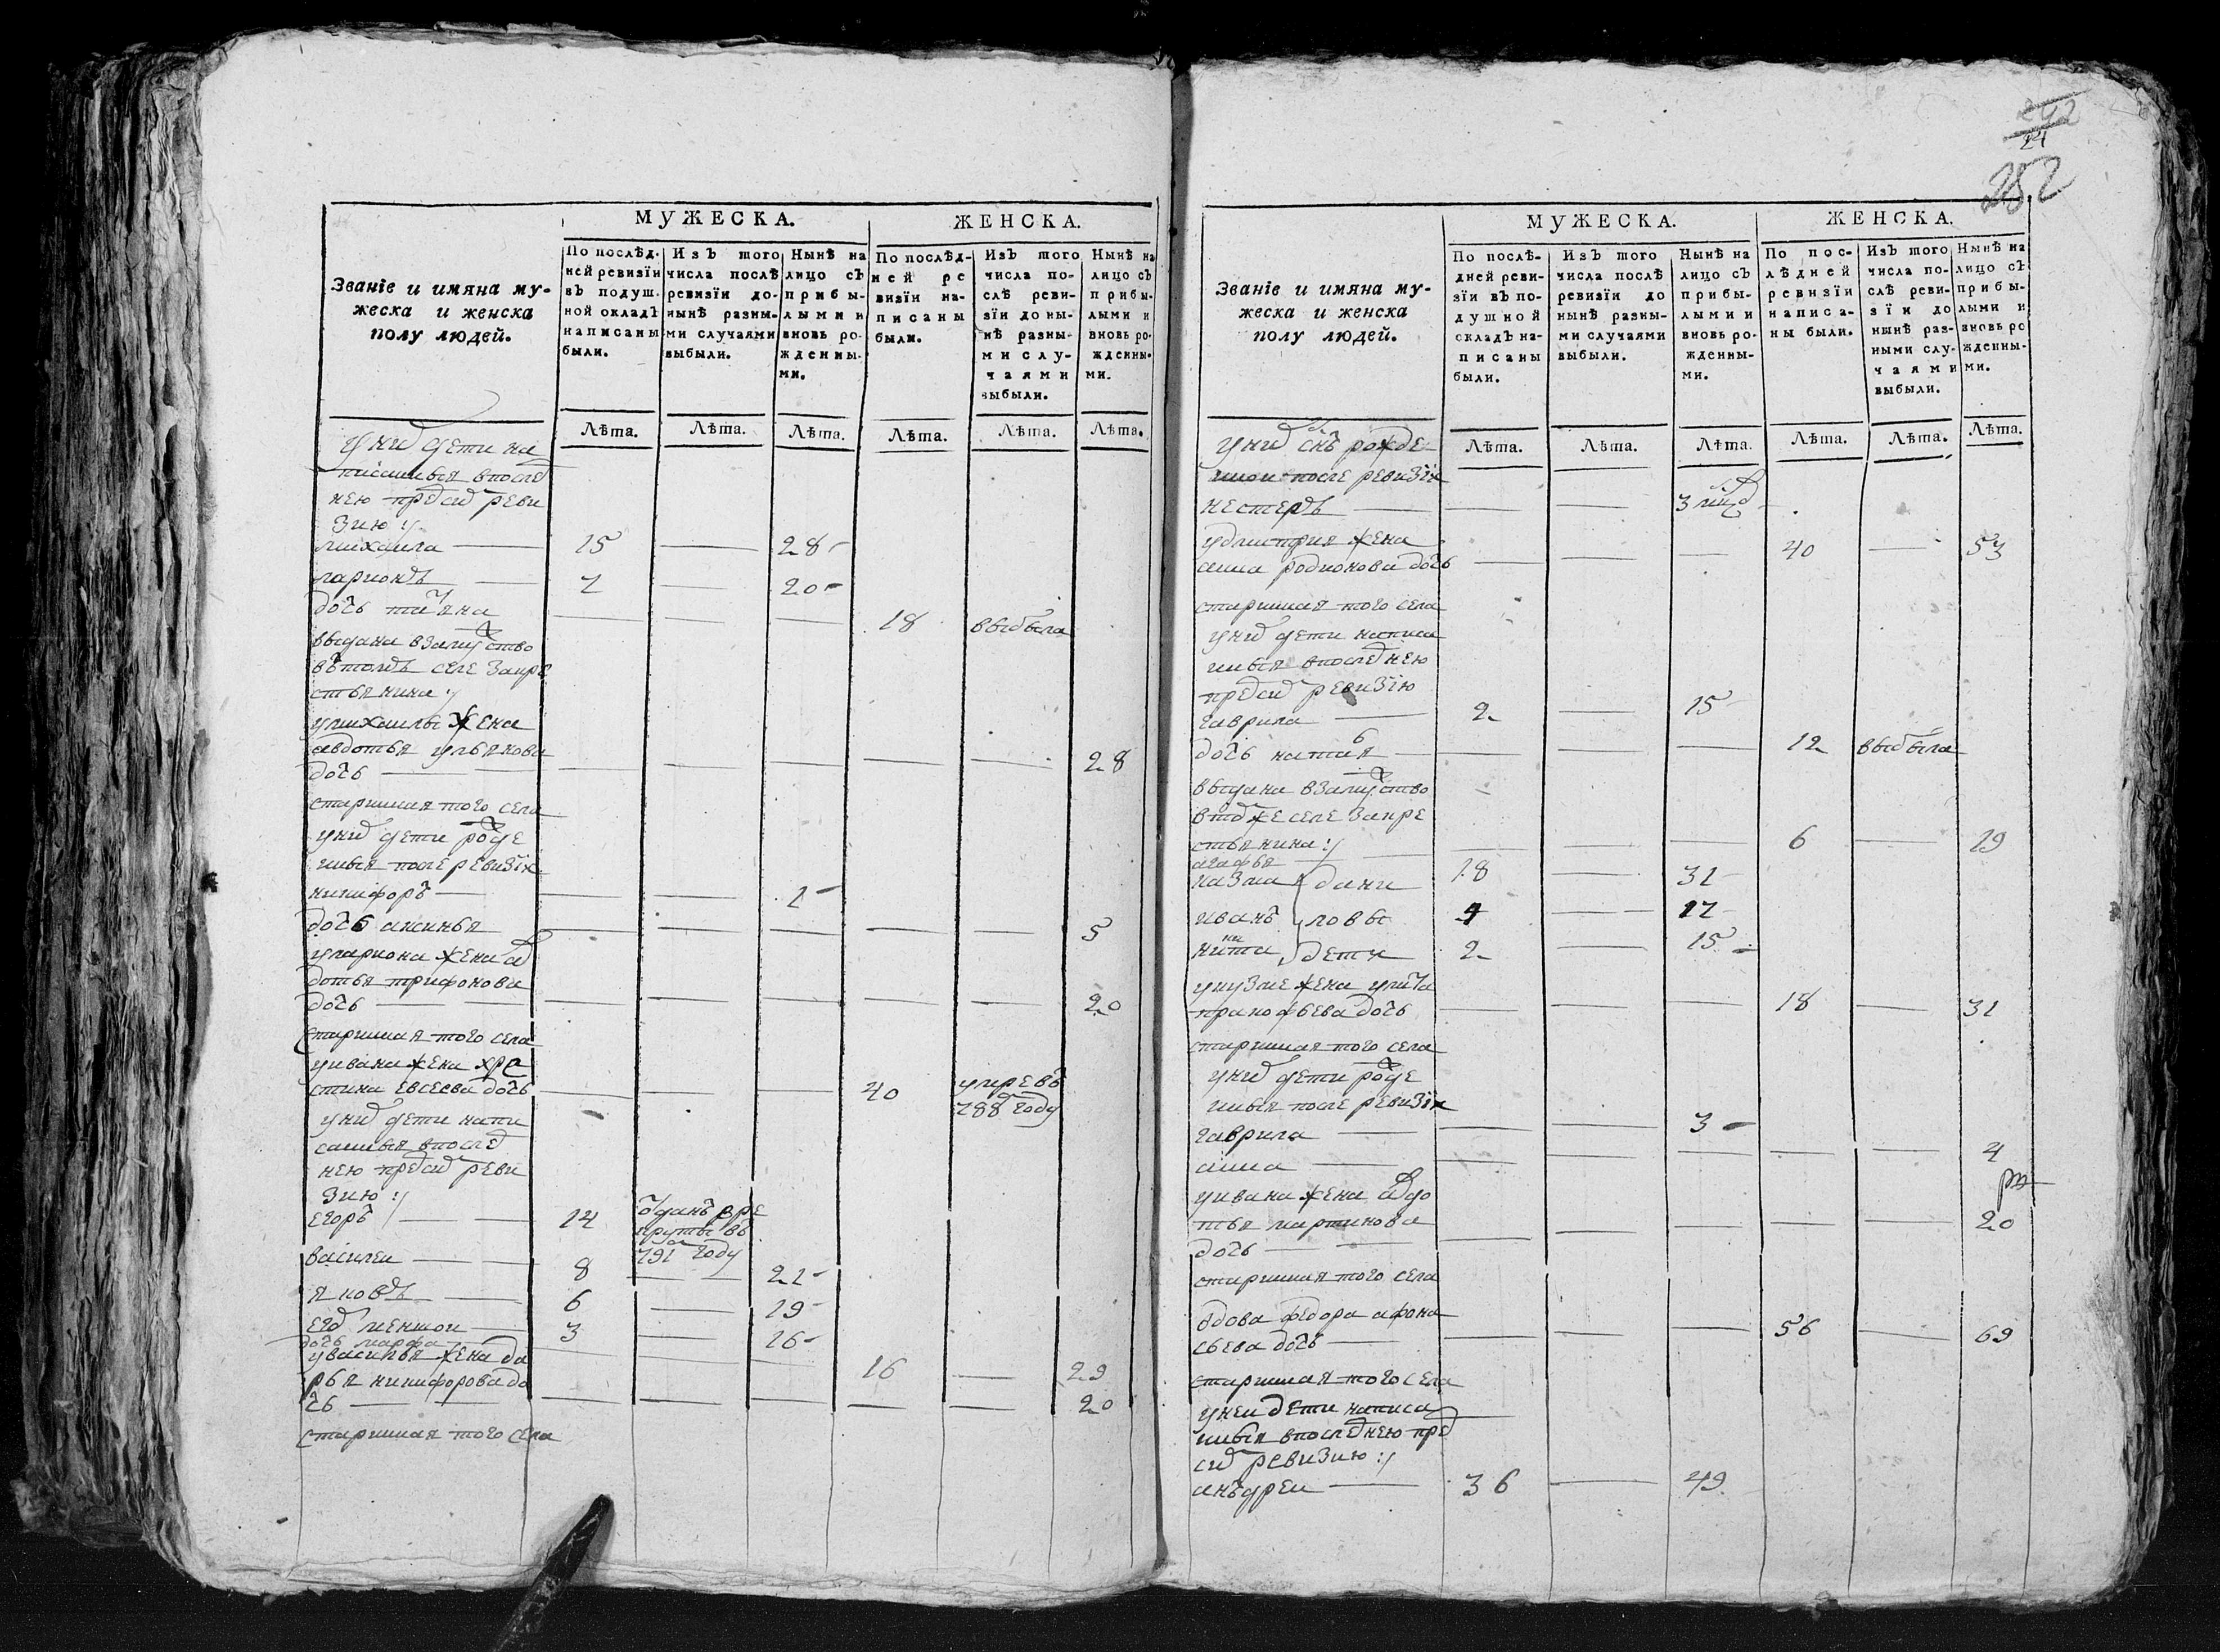 МУЖЕСКА.
ЖЕНСКА.
Званіе и имяна му-
жеска и женска
полу людей.
По послѣд.
ней ревизїи
въ подуш.
ной окладъ
написаны
были.
Изъ того
числа послѣ
ревизїи до-
нынѣ разны-
ми случаями
выбыли.
Нынѣ на
лицо съ
прибы-
лыми и
вновь ро-
жденны-
ми.
По послѣд-
ней ре
визїи на-
писаны
были.
Изъ того
числа по-
слѣ реви-
зїи до ны-
нѣ разны-
ми слу-
чаями
выбыли.
Нынѣ на
лицо съ
прибы-
лыми и
вновь ро-
жденны-
ми.
Лѣта. Лѣта. Лѣта. Лѣта. Лѣта. Лѣта.
у нихъ дети на
писаныя впослед
нею пред сид реви
зию :/
михаила 15 28
ларионъ 7 20
дочь татяна 18 выбыла
выдана взамужство
втомъ селе закре
стьянина :/
умихаилы жена
авдотья ульянова
дочь 28
старинная того села
у нихъ дети рожде
ныя после ревизiи
никифоръ 1
дочь аксинья 5
улариона жена ав
дотья трифонова
дочь 20
старинная того села
уивана жена хре
стина евсеева дочь 40 умре въ
788 году
у нихъ дети напи
саныя впослед
нею пред сид реви
зию :/
егоръ 14 отданъ вре
круты въ
791 году
василеи 8 21
яковъ 6 19
егоръ меншои 3 16
дочь марфа 16 29
увасилья жена да
рья никифорова до
чь 20
старинная того села
292
24
252
МУЖЕСКА.
ЖЕНСКА.
Званіе и имяна му-
жеска и женска
полу людей.
По послѣ-
дней реви-
зїи въ по-
душной
окладъ на-
писаны
были.
Изъ того
числа послѣ
ревизїи до
нынѣ разны-
ми случаями
выбыли.
Нынѣ на
лицо съ
прибы-
лыми и
вновь ро-
жденны-
ми.
По пос-
лѣдней
ревизїи
написа-
ны были.
Изъ того
числа по-
слѣ реви-
зїи до
нынѣ раз-
ными слу-
чаями
выбыли.
Нынѣ на
лицо съ
прибы-
лыми и
вновь ро
жденны-
ми.
Лѣта. Лѣта. Лѣта. Лѣта. Лѣта. Лѣта.
у нихъ снъ рожде
ннои после ревизiи
нестеръ 3
удмитрия жена
анна родионова дочь 40 53
старинная того села
у нихъ дети написа
ныя впоследнею
пред сид ревизiю
гаврила 2 15
дочь наталья 12 выбыла
выдана взамужство
в том же селе закре
стьянина :/
агафья 6 19
казма дани 18 31
иванъ ловы 4 17
никита дети 2 15
укузме жена улита
пракофьева дочь 18 31
старинная того села
у нихъ дети рожде
ныя после ревизiи
гаврила 3
анна 4
уивана жена авдо
тья мартинова
дочь 20
старинная того села
вдова федора афона
сьева дочь 56 69
старинная того села
унеи дети написа
ныя впоследнею пред
сид ревизию :/
анъдреи 36 49